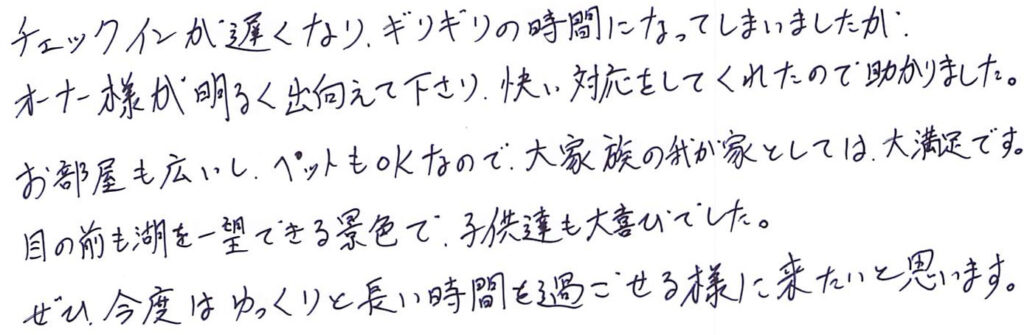 チェックインが遅くなり、ギリギリの時間になってしまいましたが、
オーナー様が明るく出向えて下さり、快い対応をしてくれたので助かりました。
お部屋も広いし、ペットもOKなので、大家族の我が家としては、大満足です。
目の前も湖を一望できる景色で、子供達も大喜びでした。
ぜひ、今度はゆっくりと長い時間を過ごせる様に来たいと思います。